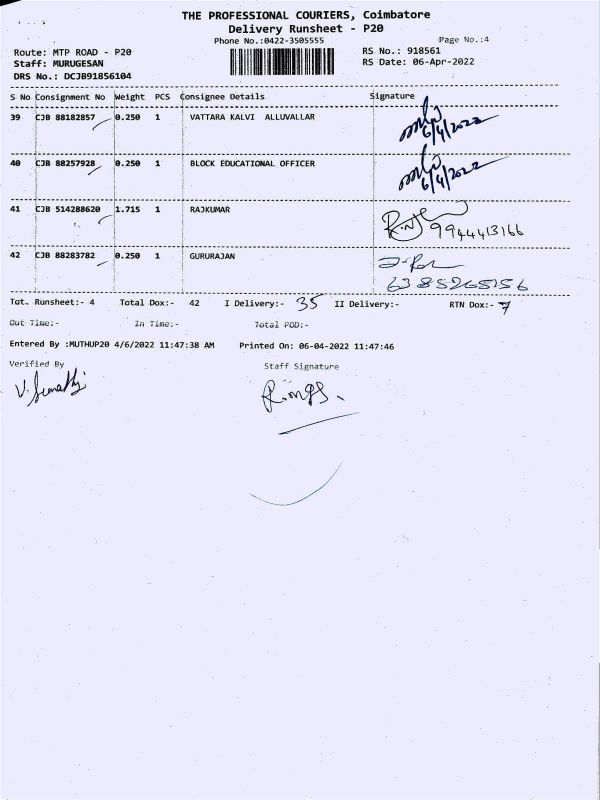 THE PROFESSIONAL COURIERS, Coimbatore
Delivery Runsheet - P20
Phone No.:0422-3505555 Page No.:4
Route: MTP ROAD - P20 RS No.: 918561
Staff: MURUGESAN RS Date: 06-Apr-2022
DRS No.: DCJB91856104
S No Consignment No Weight PCS Consignee Details Signature
39 CJB 88182857 0.250 1 VATTARA KALVI ALLUVALLAR
6/4/2022
40 CJB 88257928 0.250 1 BLOCK EDUCATIONAL OFFICER
6/4/2022
41 CJB 514288620 1.715 1 RAJKUMAR
9944413166
42 CJB 88283782 0.250 1 GURURAJAN
6385265156
Tot. Runsheet:- 4 Total Dox:- 42 I Delivery:- 35 II Delivery:- RTN Dox:- 7
Out Time:- In Time:- Total POD:-
Entered By :MUTHUP20 4/6/2022 11:47:38 AM Printed On: 06-04-2022 11:47:46
Verified By Staff Signature